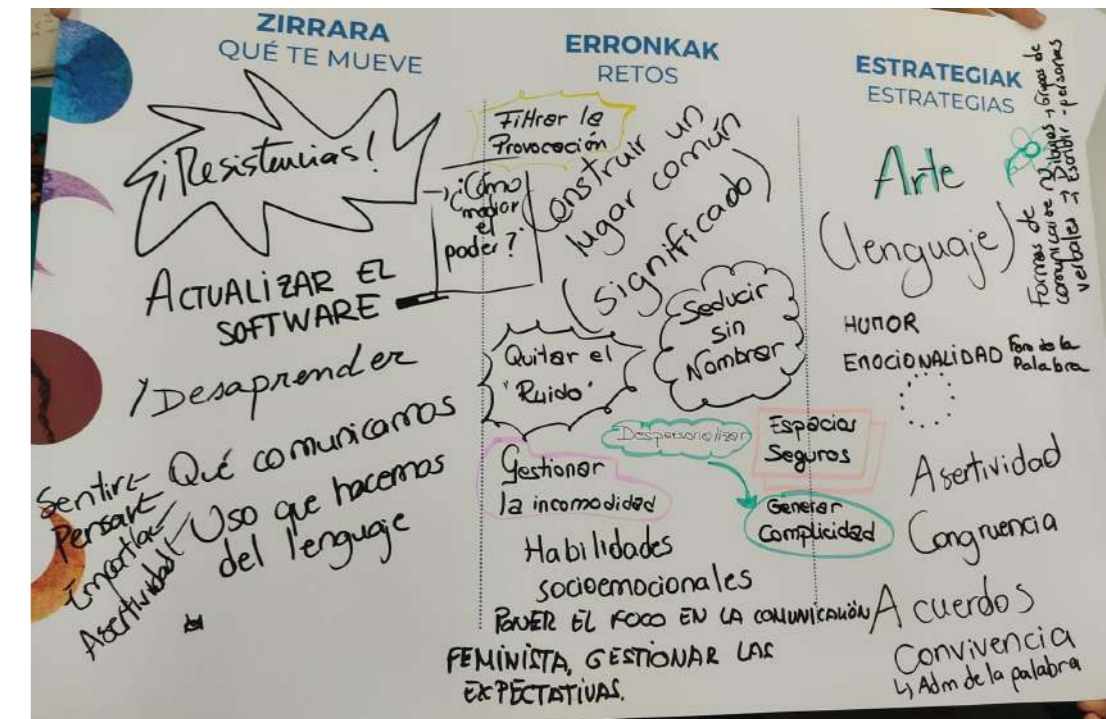 ZIRRARA
QUÉ TE MUEVE
¡Resistencias!
ACTUALIZAR EL
SOFTWARE
Desaprender
Sentir
Pensar
Asertividad
Qué comunicamos
Uso que hacemos
del lenguaje
ERRONKAK
RETOS
Filtrar la
Provocación
→ ¿Cómo
mediar
el
poder?
Construir un
lugar común
(significado)
Quitar el
'Ruido'
Seducir
sin
Nombrar
Despersonalizar
Espacios
Seguros
Generar
Complicidad
Gestionar
la incomodidad
Habilidades
socioemocionales
PONER EL FOCO EN LA COMUNICACIÓN
FEMINISTA, GESTIONAR LAS
EXPECTATIVAS.
ESTRATEGIAK
ESTRATEGIAS
Arte
(lenguaje)
Formas de
comunicarse
verbales
Dibujos → Grupos de
Escribir personas
HUMOR
EMOCIONALIDAD
de la
Palabra
Asertividad
Congruencia
Acuerdos
Convivencia
↳ Adm de la palabra